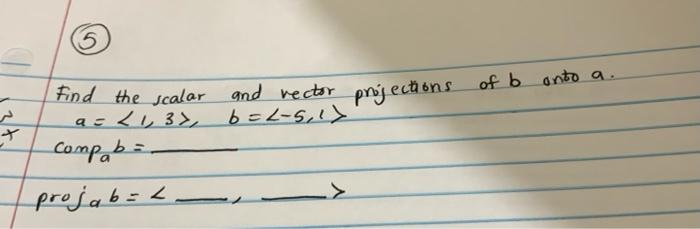 5
Find the scalar and vector projections of b onto a.
a = <1, 3>, b = <-5, 1>
comp_a b = ______
proj_a b = < ____, ____ >